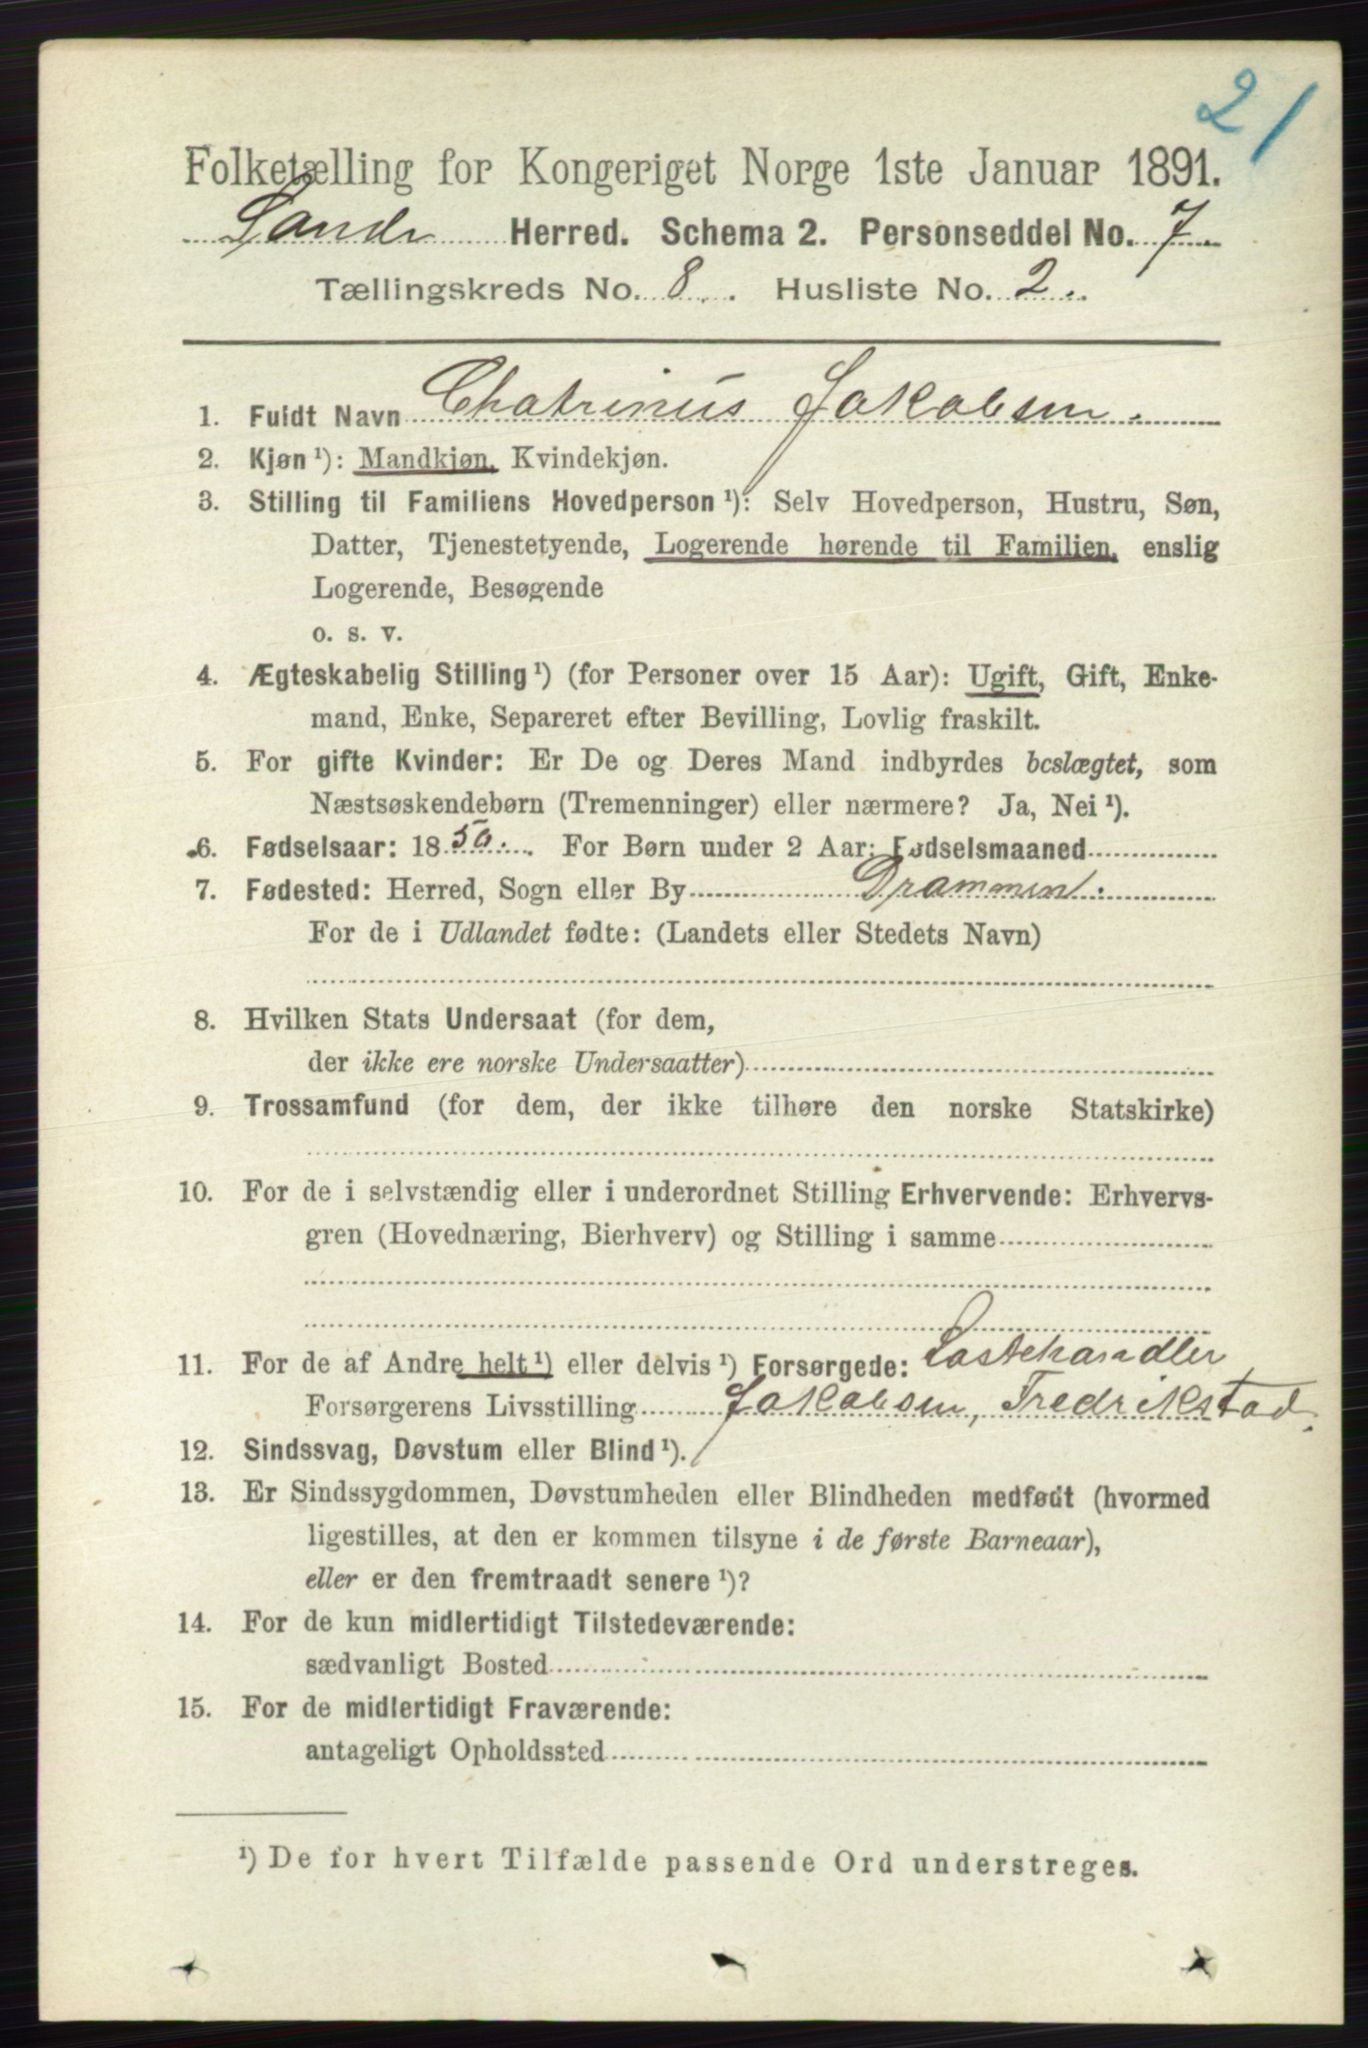 21
Folketælling for Kongeriget Norge 1ste Januar 1891.
Sande Herred. Schema 2. Personseddel No. 7.
Tællingskreds No. 8. Husliste No. 2.
1. Fuldt Navn Chatrinus Jakobsen.
2. Kjøn ¹): Mandkjøn, Kvindekjøn.
3. Stilling til Familiens Hovedperson ¹): Selv Hovedperson, Hustru, Søn,
Datter, Tjenestetyende, Logerende hørende til Familien, enslig
Logerende, Besøgende
o. s. v.
4. Ægteskabelig Stilling ¹) (for Personer over 15 Aar): Ugift, Gift, Enke-
mand, Enke, Separeret efter Bevilling, Lovlig fraskilt.
5. For gifte Kvinder: Er De og Deres Mand indbyrdes beslægtet, som
Næstsøskendebørn (Tremenninger) eller nærmere? Ja, Nei ¹).
6. Fødselsaar: 1850. For Børn under 2 Aar: Fødselsmaaned
7. Fødested: Herred, Sogn eller By Drammen.
For de i Udlandet fødte: (Landets eller Stedets Navn)
8. Hvilken Stats Undersaat (for dem,
der ikke ere norske Undersaatter)
9. Trossamfund (for dem, der ikke tilhøre den norske Statskirke)
10. For de i selvstændig eller i underordnet Stilling Erhvervende: Erhvervs-
gren (Hovednæring, Bierhverv) og Stilling i samme
11. For de af Andre helt ¹) eller delvis ¹) Forsørgede: Lastehandler
Forsørgerens Livsstilling Jakobsen, Fredrikstad.
12. Sindssvag, Døvstum eller Blind ¹).
13. Er Sindssygdommen, Døvstumheden eller Blindheden medfødt (hvormed
ligestilles, at den er kommen tilsyne i de første Barneaar),
eller er den fremtraadt senere ¹)?
14. For de kun midlertidigt Tilstedeværende:
sædvanligt Bosted
15. For de midlertidigt Fraværende:
antageligt Opholdssted
¹) De for hvert Tilfælde passende Ord understreges.